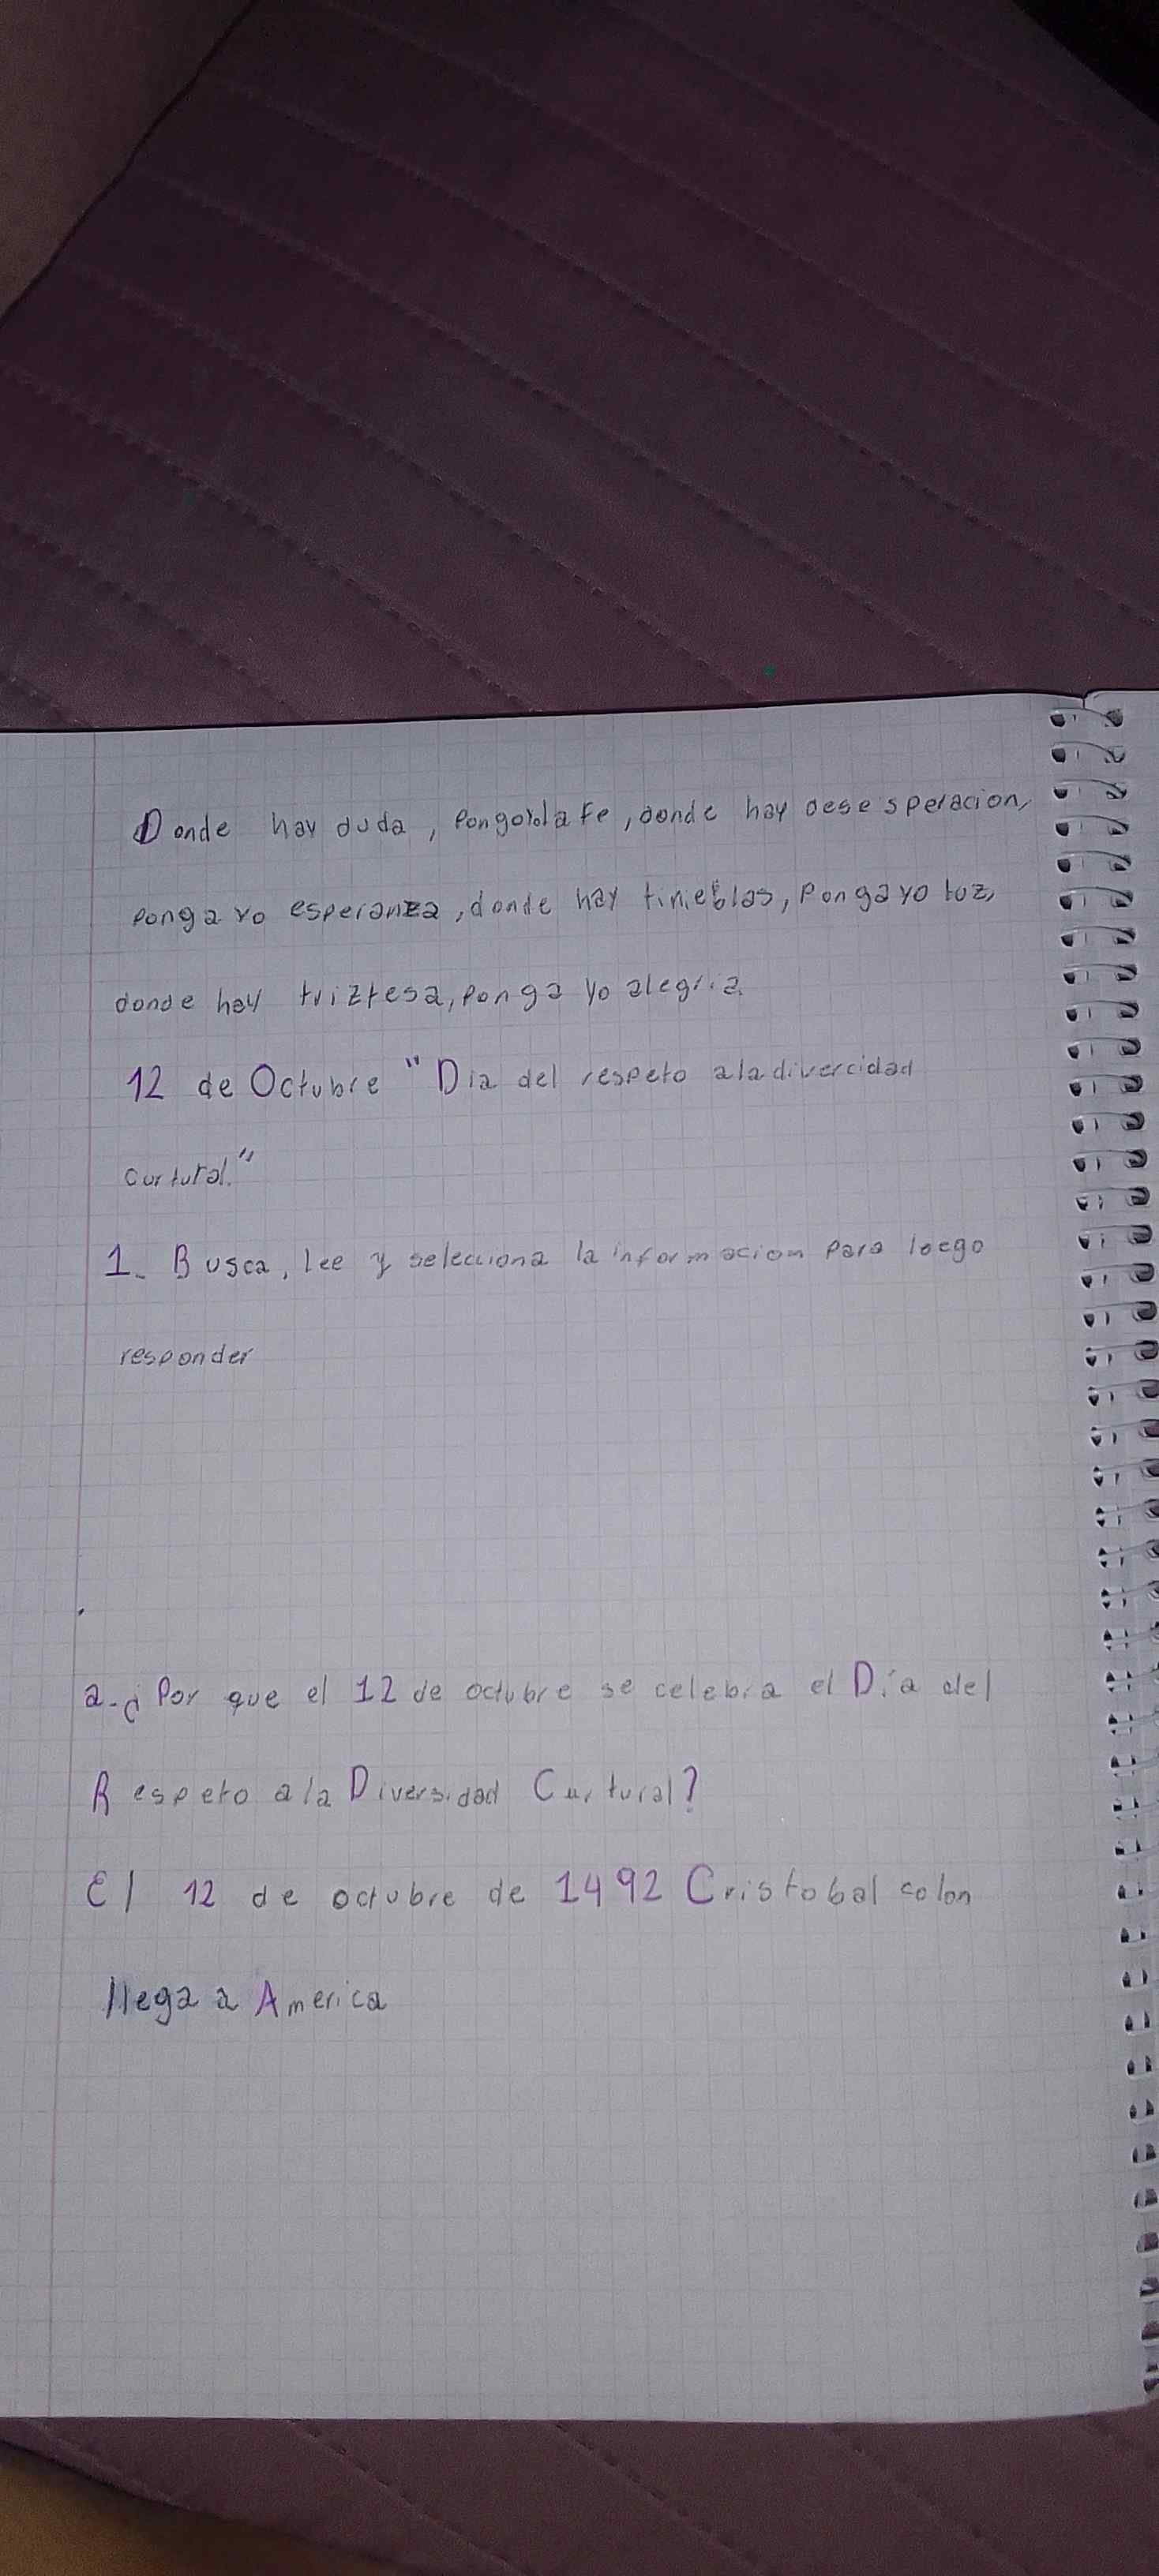 Donde hay duda, Pongoyola Fe, donde hay desesperacion,
ponga yo esperanza, donde hay tinieblas, Ponga yo luz,
donde hay triztesa, ponga yo alegria.
12 de Octubre "Dia del respeto ala divercidad
curtural."
1_ Busca, lee y selecciona la informacion para loego
responder
a-¿Por que el 12 de octubre se celebra el Día del
Respeto a la Diversidad Curtural?
El 12 de octubre de 1492 Cristobal colon
llega a America